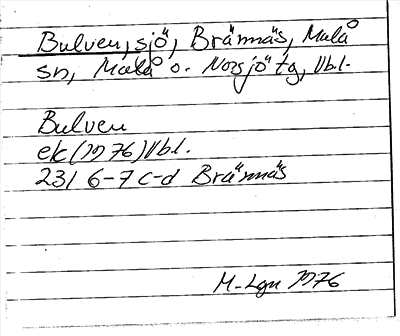 Bulven, sjö, Brännäs, Malå
sn, Malå o. Norsjö tg, Vbl.
Bulven
ek (1976) Vbl.
231 6-7 c-d Brännäs
M-Lgn 1976